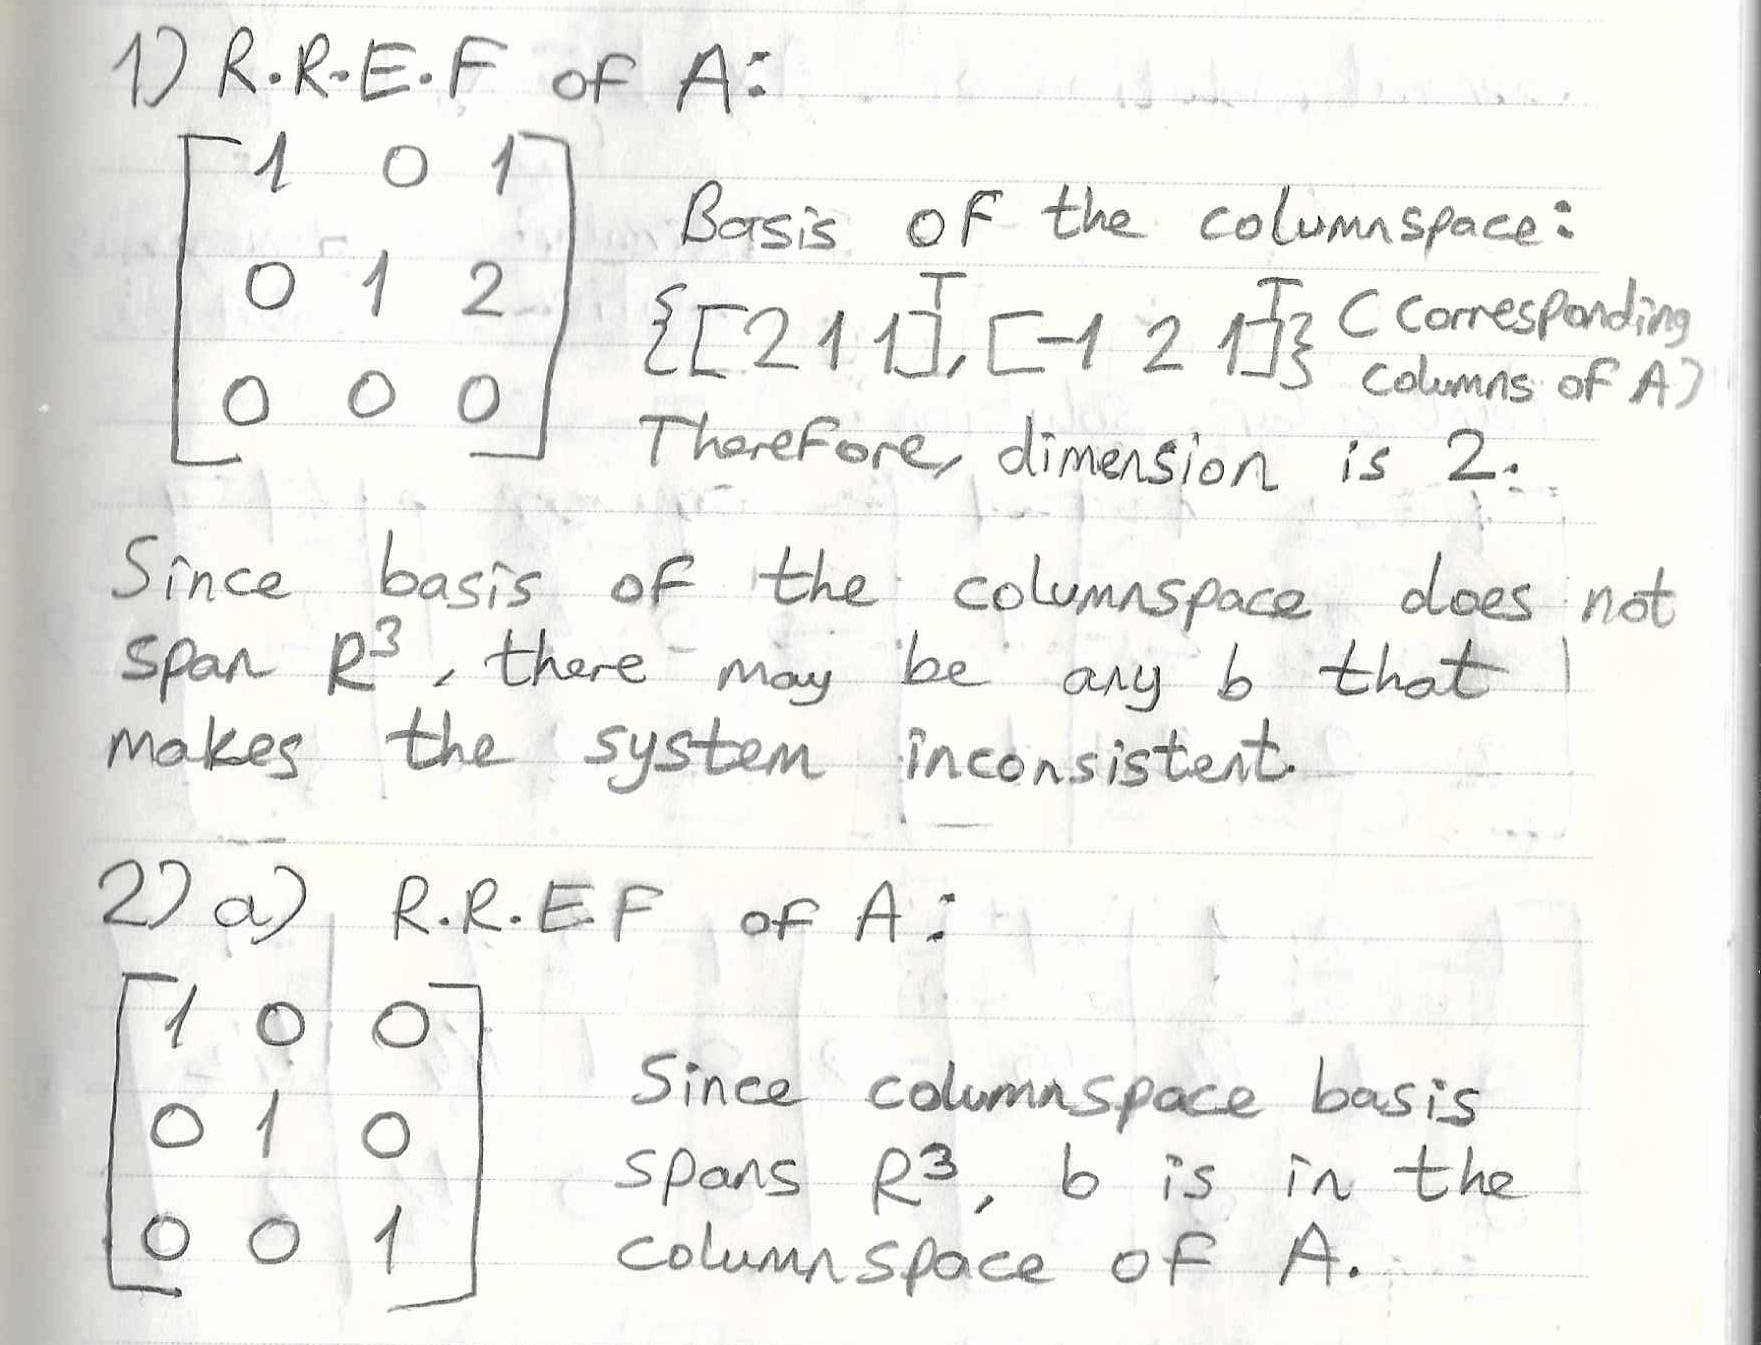 1) R.R.E.F of A:
[1 0 1
0 1 2
0 0 0]
Basis of the columnspace:
{[2 1 1]ᵀ, [-1 2 1]ᵀ} (Corresponding
columns of A)
Therefore, dimension is 2.
Since basis of the columnspace does not
span R³, there may be any b that
makes the system inconsistent.
2) a) R.R.E.F of A:
[1 0 0
0 1 0
0 0 1]
Since columnspace basis
spans R³, b is in the
columnspace of A.